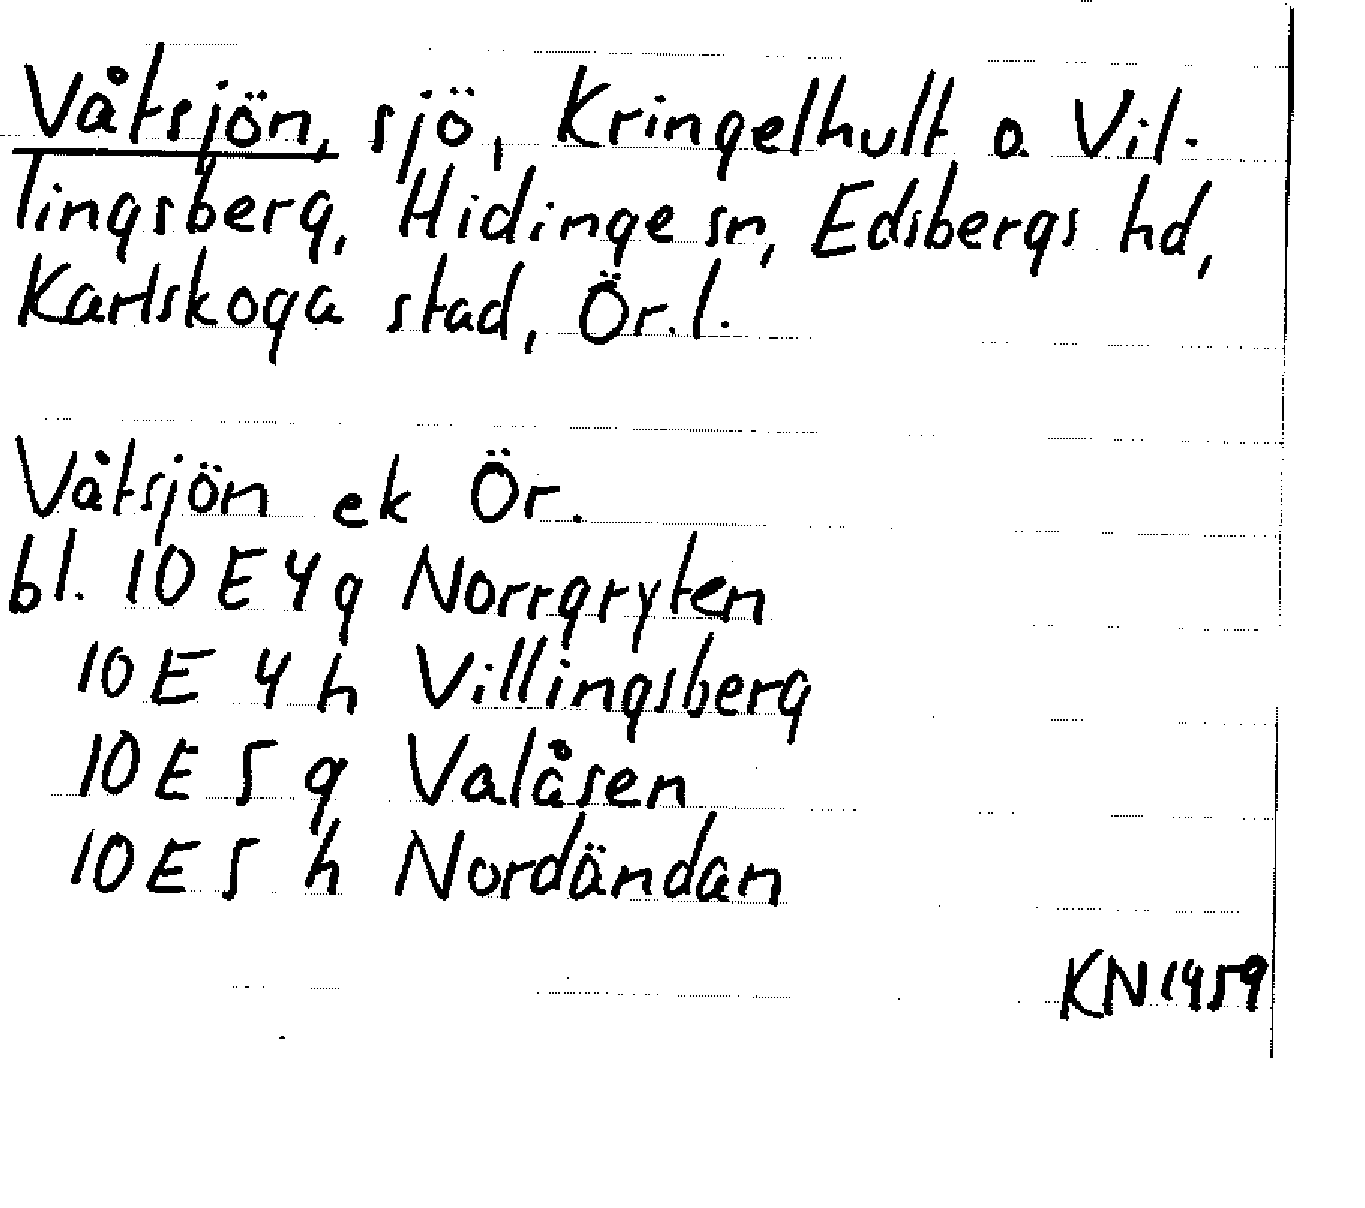 Våtsjön, sjö, Kringelhult o. Vil-
lingsberg, Hidinge sn, Edsbergs hd,
Karlskoga stad, Ör. l.
Våtsjön ek Ör.
bl. 10 E 4 g Norrgryten
10 E 4 h Villingsberg
10 E 5 g Valåsen
10 E 5 h Nordändan
KN 1959